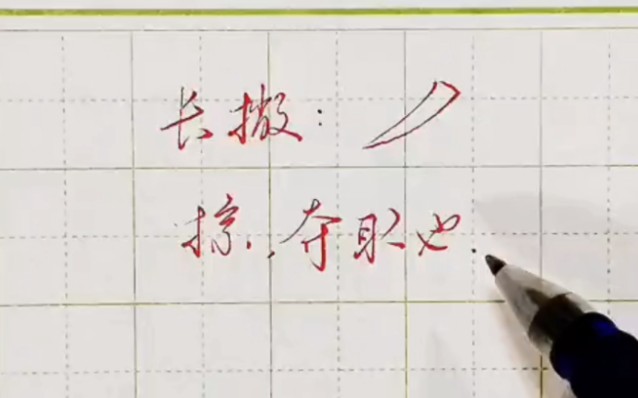 长撇:
掠,夺取也.